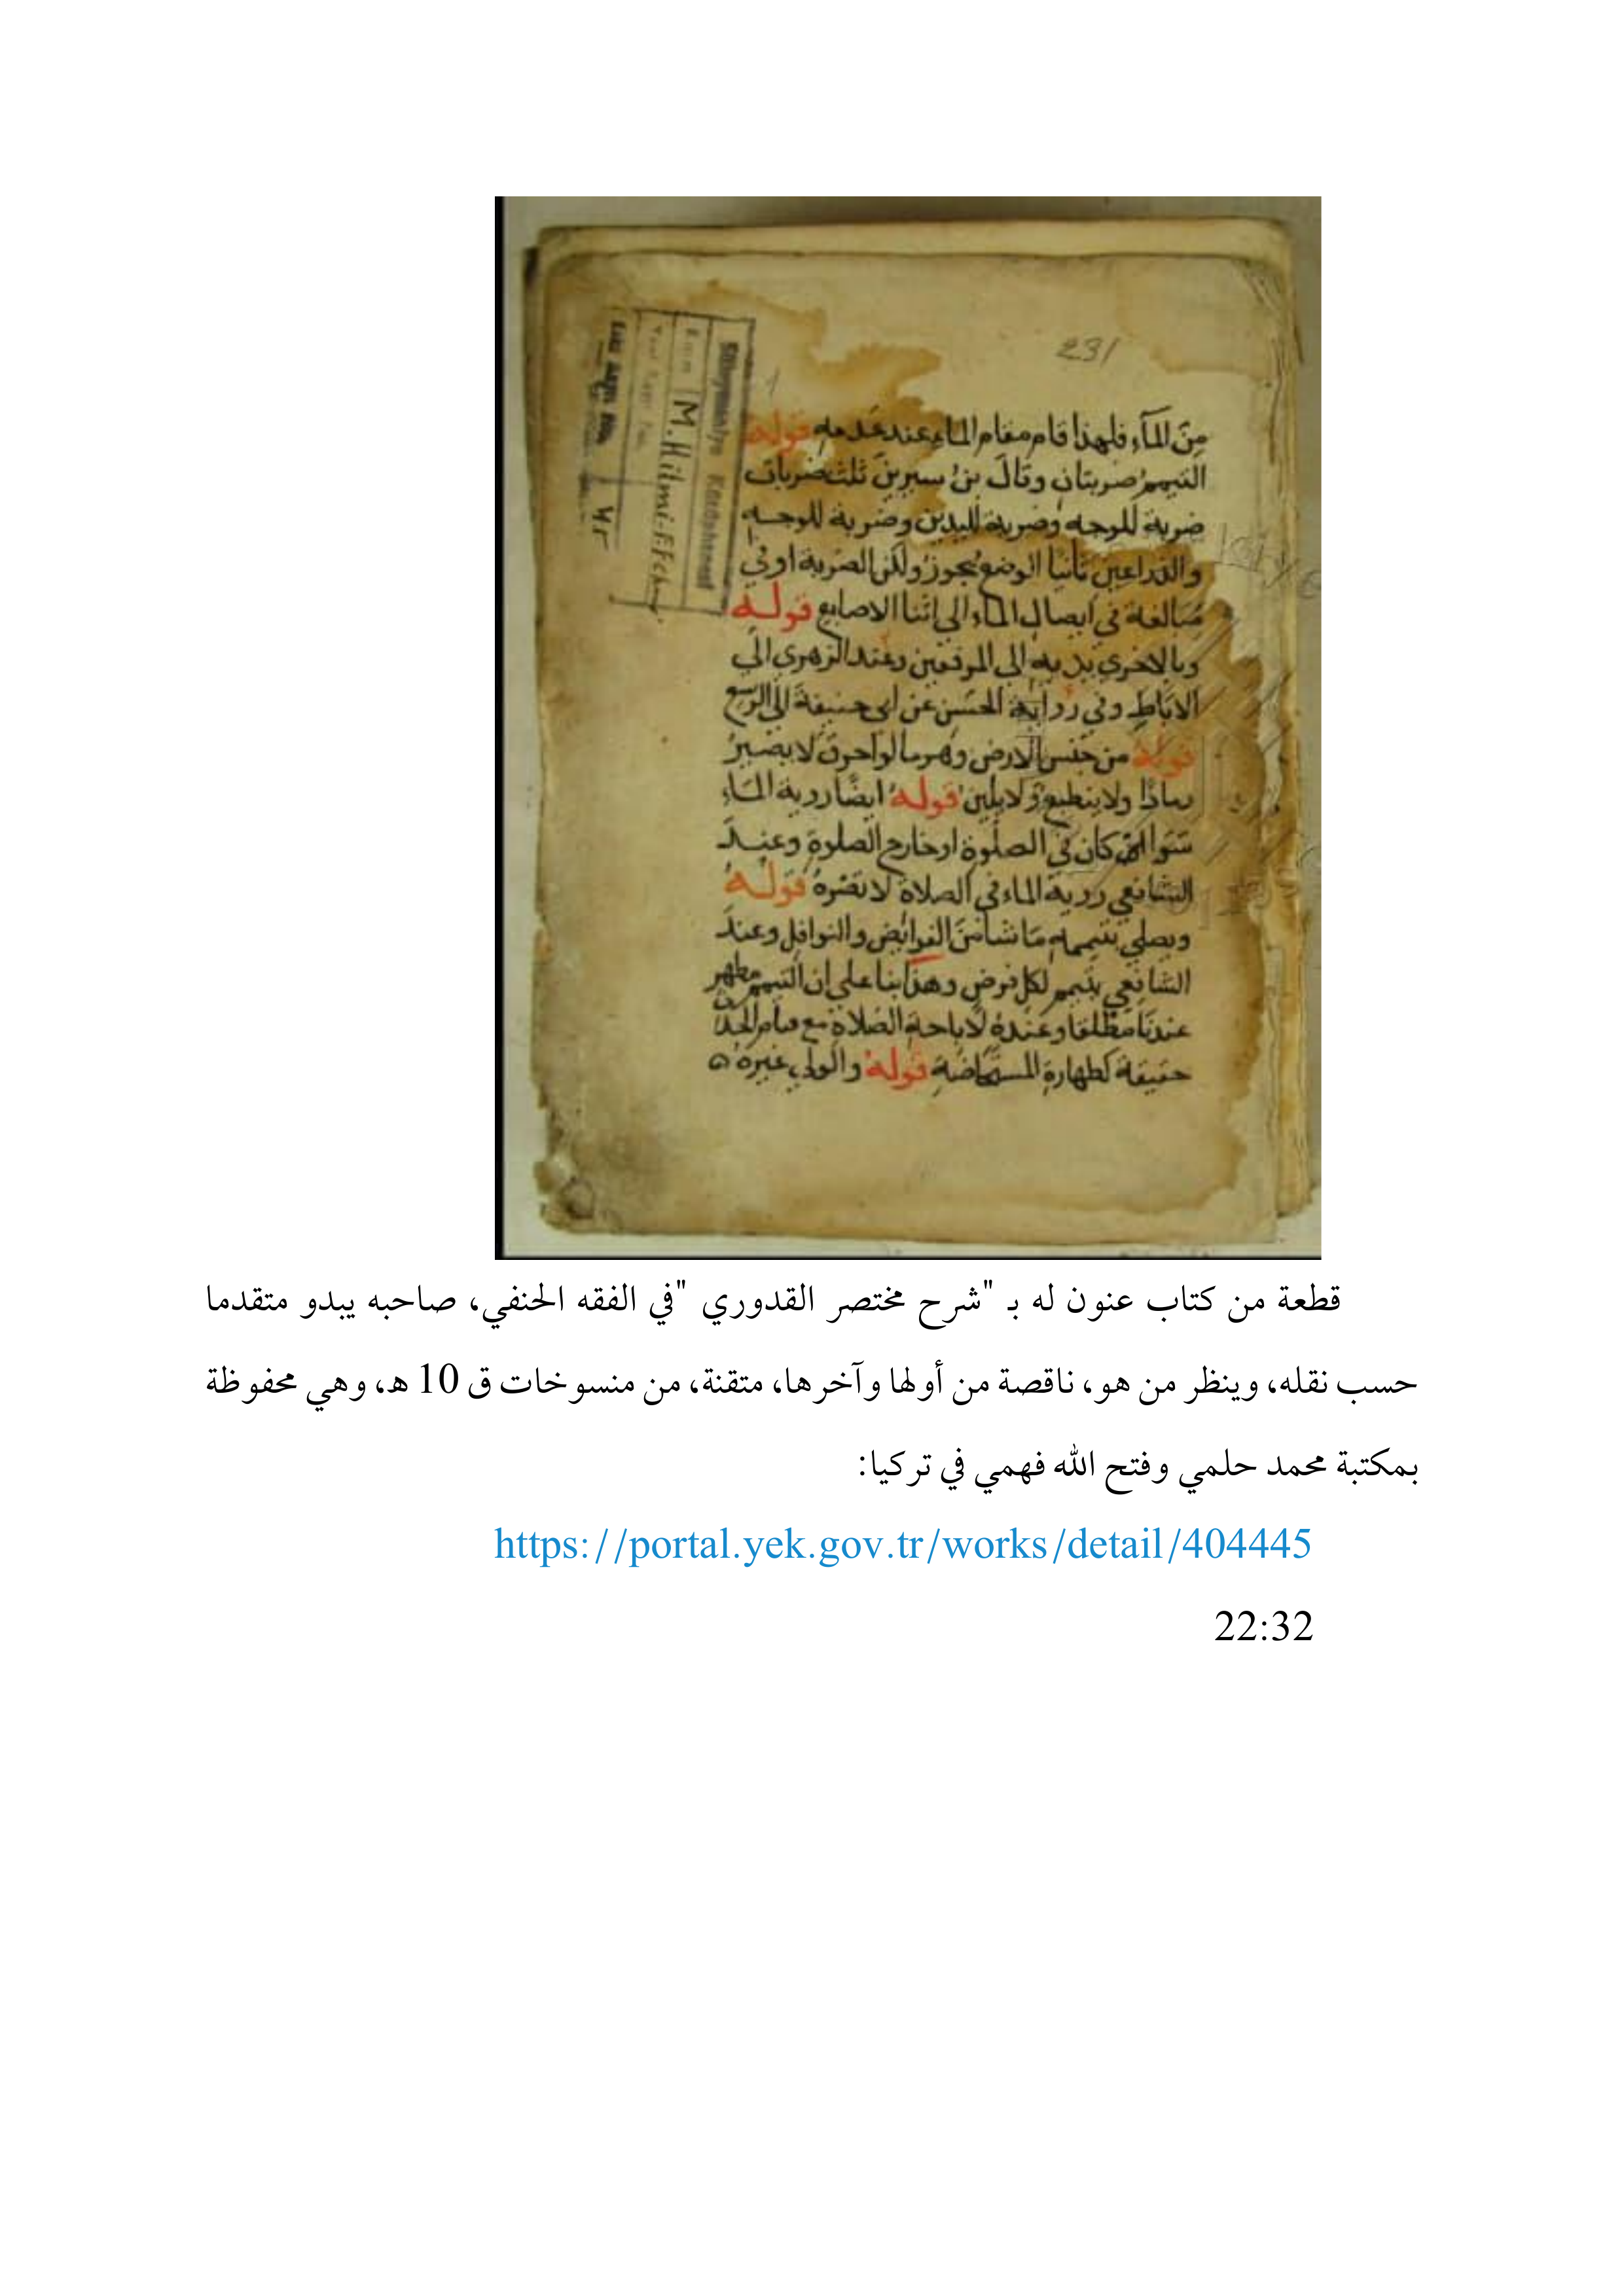 231
من المآء فلهذا قام مقام الماء عند عدمه قوله
التيمم ضربتان وقال بن سيرين ثلث ضربات
ضربة للوجه وضربة لليدين وضربة للوجه
والذراعين ثانيا الوضع يجوز ولكن الضربة اولي
مبالغة في ايصال الماء الي اثنا الاصابع قوله
وبالاخري يديه إلى المرفقين وعند الزهري الى
الاباط وفي رواية الحسن عن ابي حنيفة الى الرسغ
قوله من جنس الارض وهو مالو احرق لا يصير
رمادا ولا ينطبع ولا يلين قوله ايضا روية الماء
سوا كان في الصلوة او خارج الصلوة وعند
الشافعي روية الماء في الصلاة لا تضره قوله
ويصلي بتيممه ما شا من الفرايض والنوافل وعند
الشافعي يتيمم لكل فرض وهذا بنا على ان التيمم مطهر
عندنا مطلقا وعنده لاباحة الصلاة مع قيام الحدث
حقيقة كطهارة المستحاضة قوله والولي غيره
Süleymaniye Kütüphanesi
M. Hilmi-F. Fehmi
قطعة من كتاب عنون له بـ "شرح مختصر القدوري "في الفقه الحنفي، صاحبه يبدو متقدما
حسب نقله، وينظر من هو، ناقصة من أولها وآخرها، متقنة، من منسوخات ق 10 هـ، وهي محفوظة
بمكتبة محمد حلمي وفتح الله فهمي في تركيا:
https://portal.yek.gov.tr/works/detail/404445
22:32